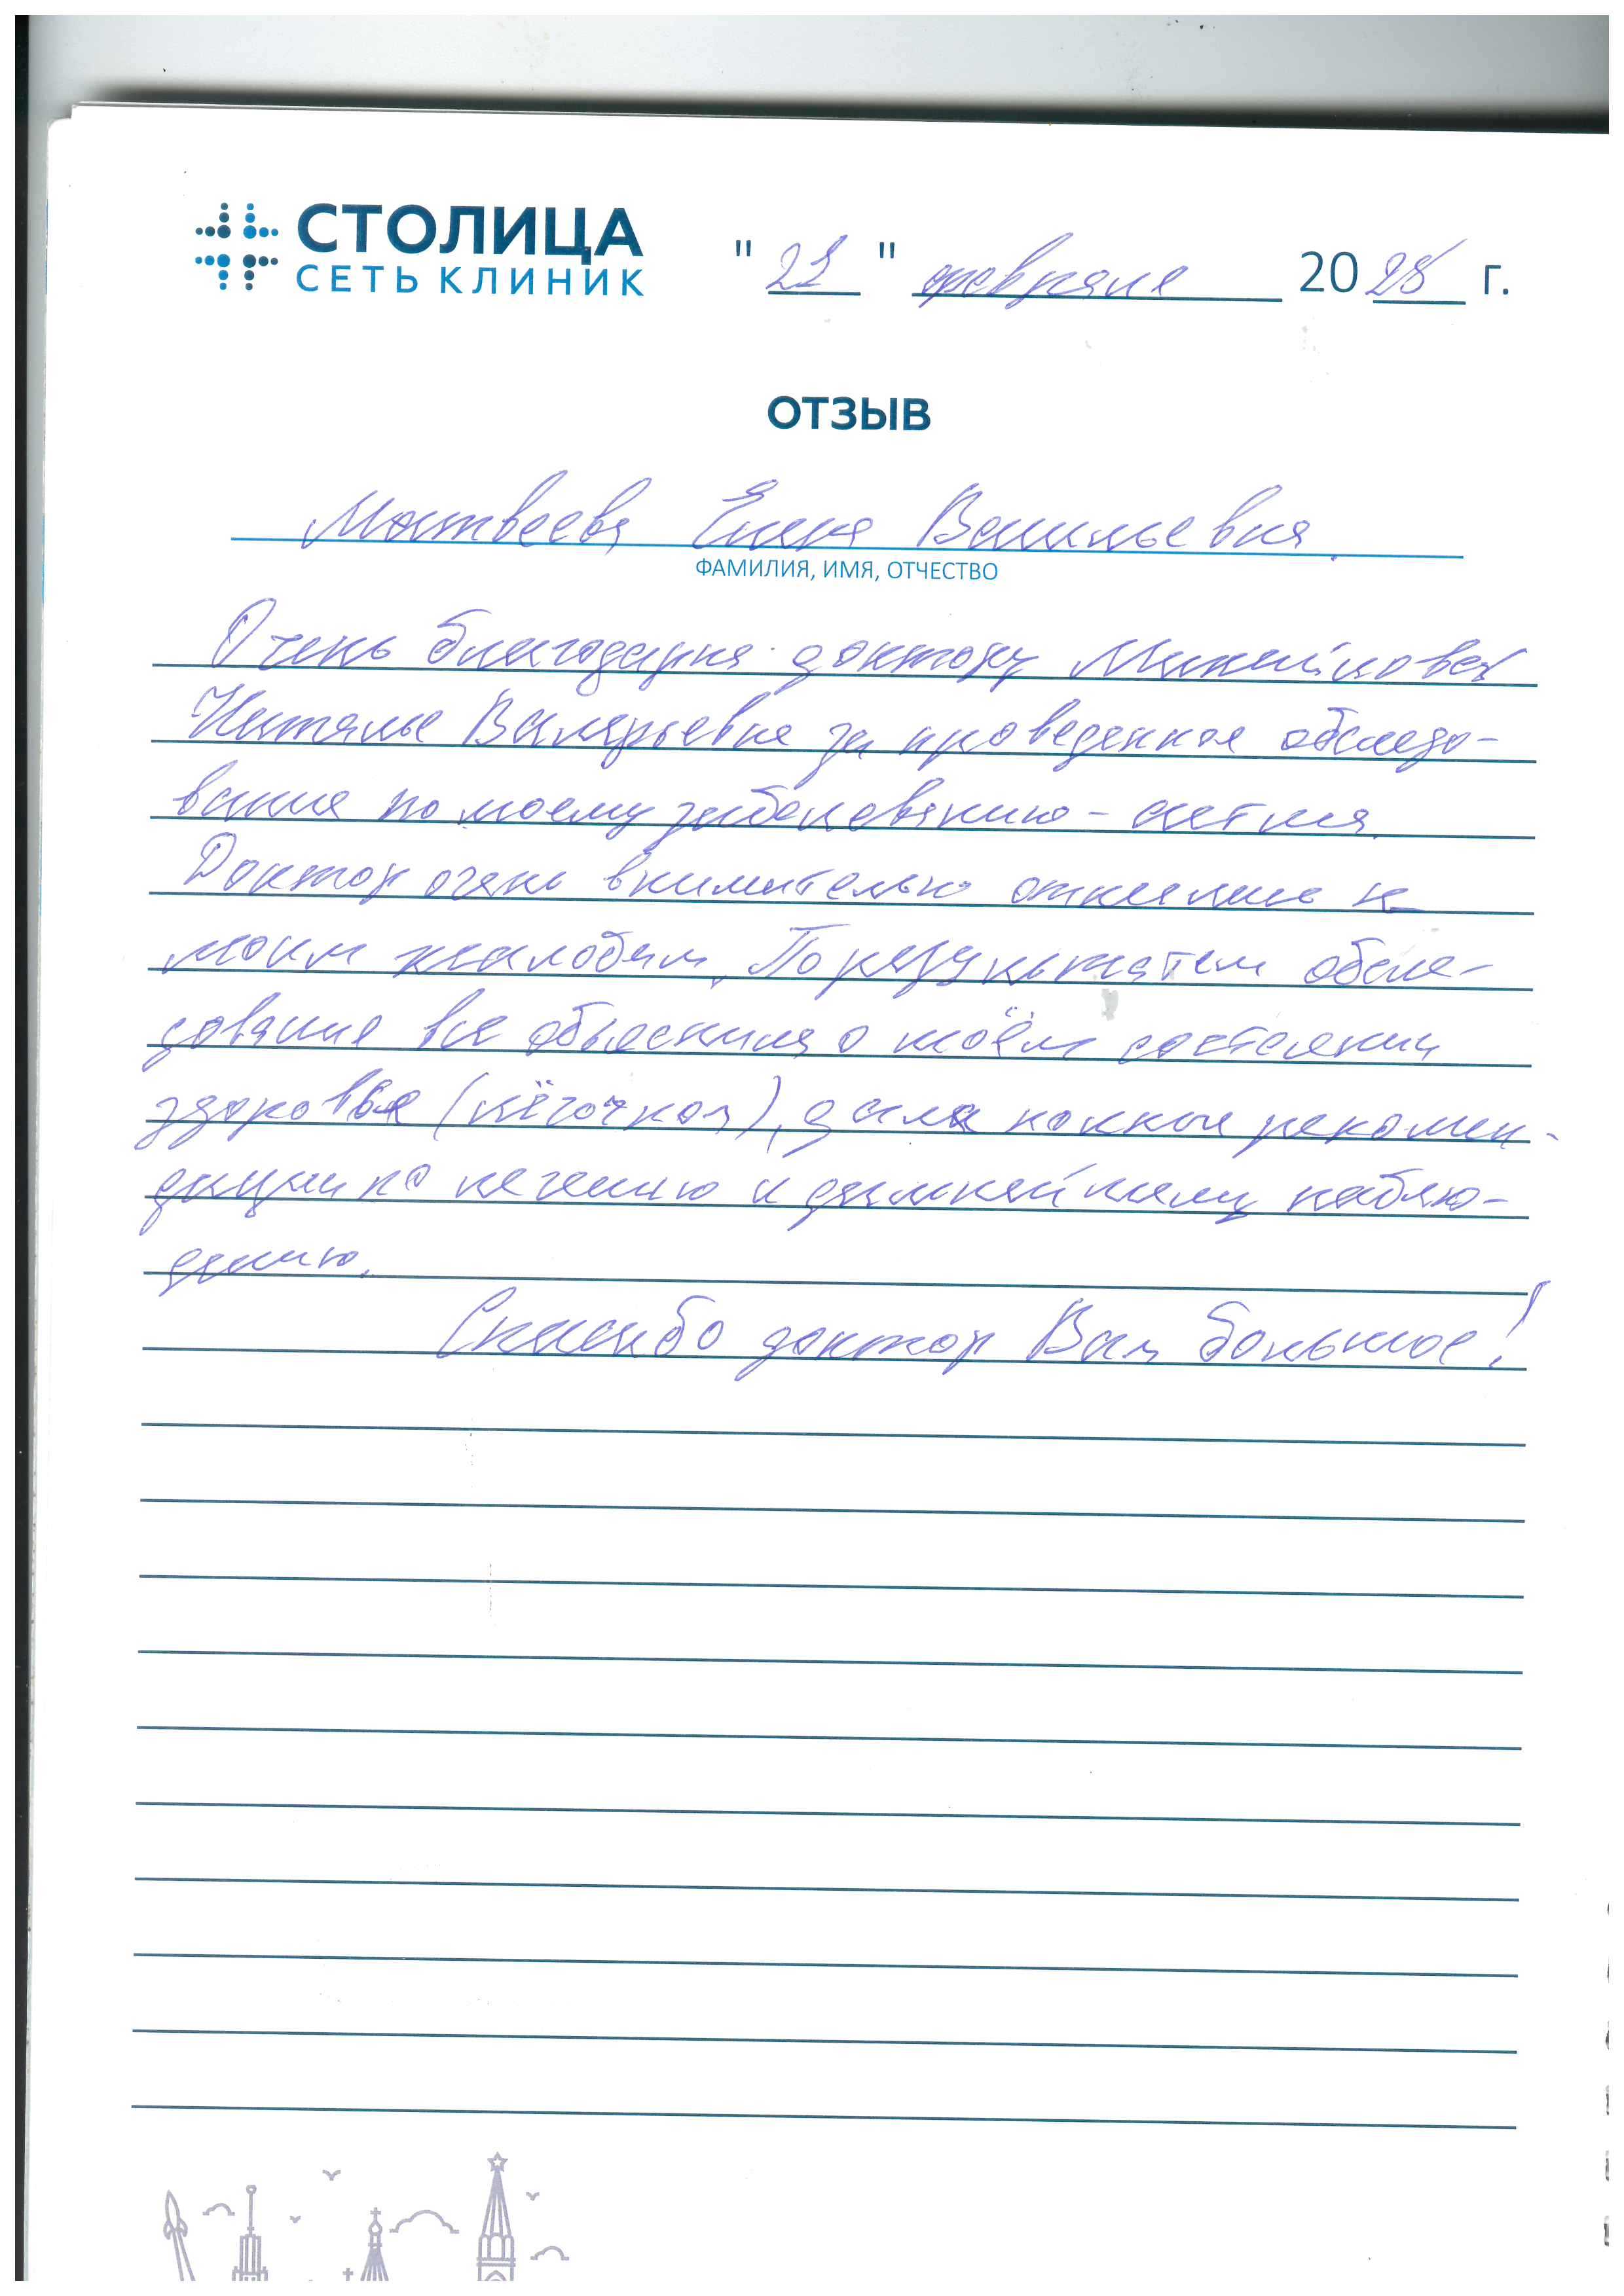 СТОЛИЦА
СЕТЬ КЛИНИК
" 22 " февраля 2025 г.
ОТЗЫВ
Матвеева Елена Васильевна.
ФАМИЛИЯ, ИМЯ, ОТЧЕСТВО
Очень благодарна доктору
Наталье Валерьевне за проведенное обследо-
вание по моему заболеванию - астма.
Доктор очень внимательно отнеслась к
моим жалобам. По результатам обсле-
дования все объяснила о моём состоянии
здоровья (лёгочном), дала полные рекомен-
дации по лечению и дальнейшему наблю-
дению.
Спасибо доктор Вам большое!